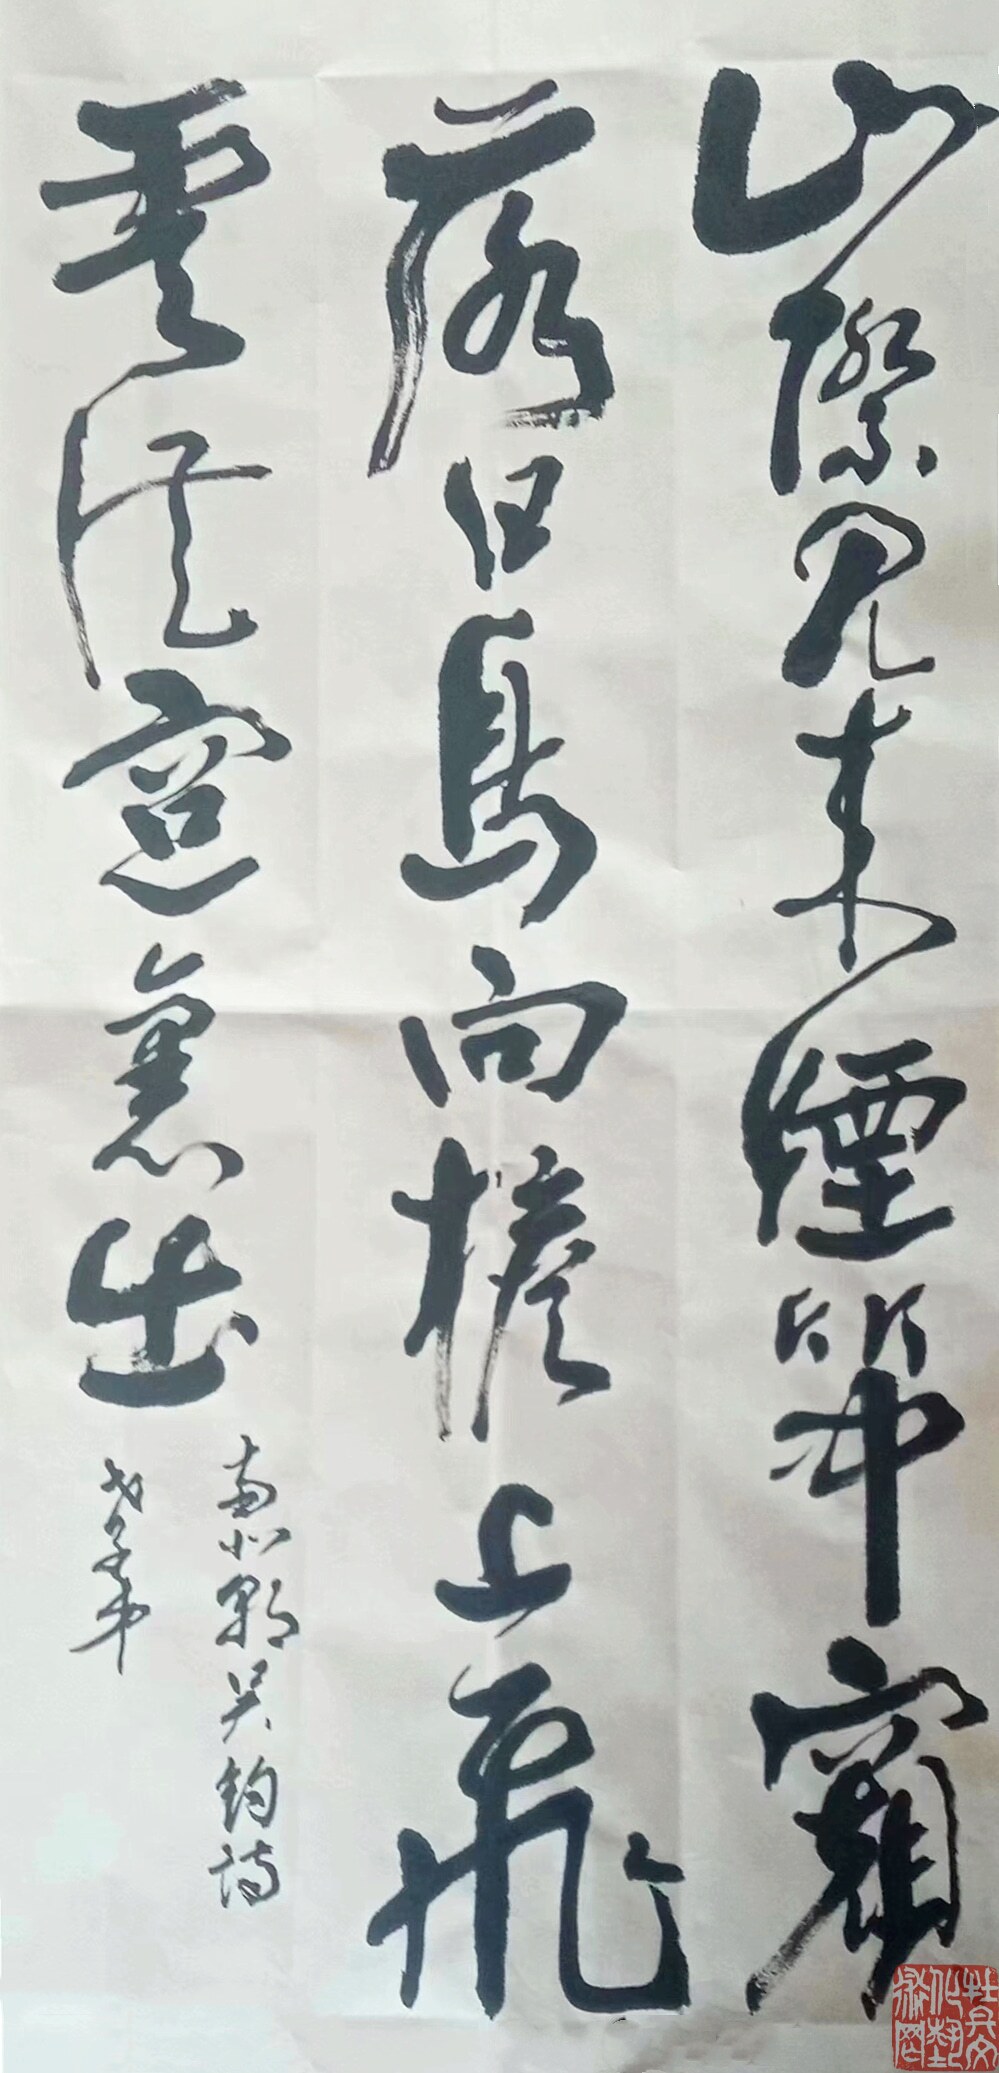 山際見來煙竹中窺
落日鳥向檐上飛
雲從窗裏出
南北朝吴鈞詩
戊子年